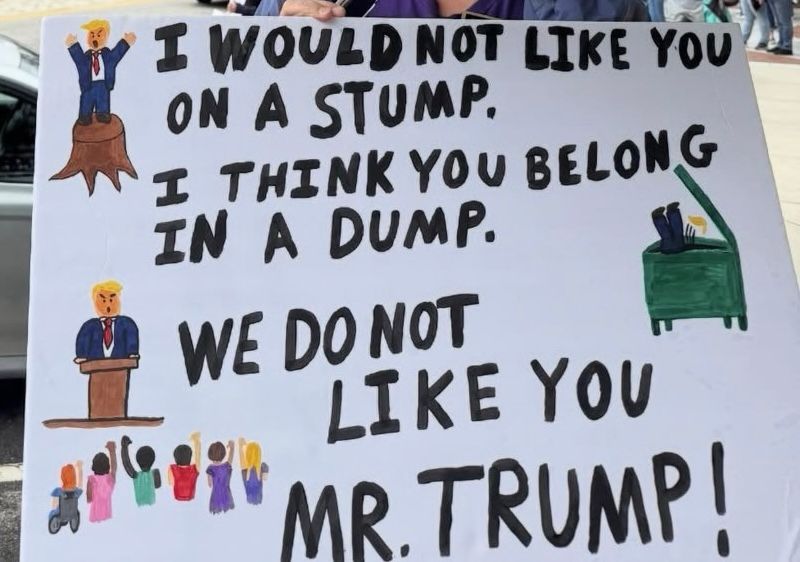 I WOULD NOT LIKE YOU
ON A STUMP.
I THINK YOU BELONG
IN A DUMP.
WE DO NOT
LIKE YOU
MR. TRUMP!